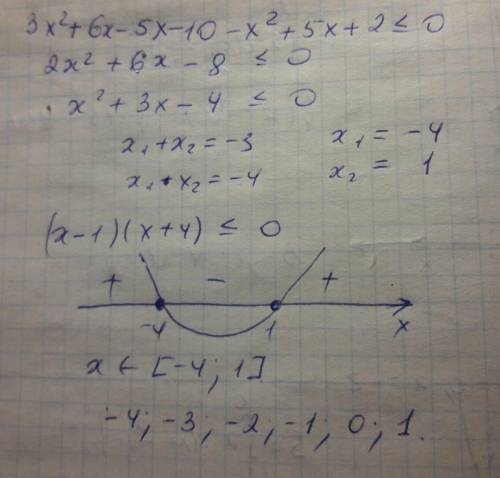 3x²+6x-5x-10-x²+5x+2≤0
2x²+6x-8 ≤0
x²+3x-4 ≤0
x₁+x₂=-3 x₁= -4
x₁·x₂=-4 x₂= 1
(x-1)(x+4) ≤ 0
+ - +
-4 1 x
x ∈ [-4; 1]
-4; -3; -2; -1; 0; 1.